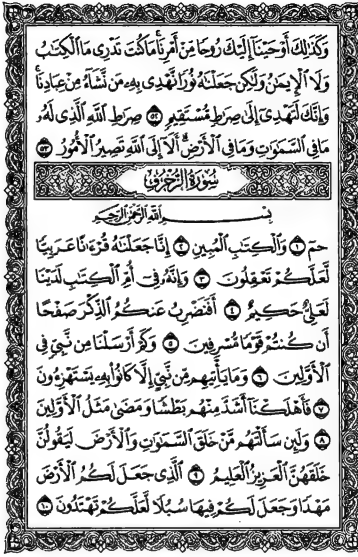 وَكَذَٰلِكَ أَوْحَيْنَآ إِلَيْكَ رُوحًا مِّنْ أَمْرِنَا ۚ مَا كُنتَ تَدْرِى مَا ٱلْكِتَٰبُ
وَلَا ٱلْإِيمَٰنُ وَلَٰكِن جَعَلْنَٰهُ نُورًا نَّهْدِى بِهِۦ مَن نَّشَآءُ مِنْ عِبَادِنَا ۚ
وَإِنَّكَ لَتَهْدِىٓ إِلَىٰ صِرَٰطٍ مُّسْتَقِيمٍ ٥٢ صِرَٰطِ ٱللَّهِ ٱلَّذِى لَهُۥ
مَا فِى ٱلسَّمَٰوَٰتِ وَمَا فِى ٱلْأَرْضِ ۗ أَلَآ إِلَى ٱللَّهِ تَصِيرُ ٱلْأُمُورُ ٥٣
سُورَةُ الزُّخْرُفِ
بِسْمِ ٱللَّهِ ٱلرَّحْمَٰنِ ٱلرَّحِيمِ
حمٓ ١ وَٱلْكِتَٰبِ ٱلْمُبِينِ ٢ إِنَّا جَعَلْنَٰهُ قُرْءَٰنًا عَرَبِيًّا
لَّعَلَّكُمْ تَعْقِلُونَ ٣ وَإِنَّهُۥ فِىٓ أُمِّ ٱلْكِتَٰبِ لَدَيْنَا
لَعَلِىٌّ حَكِيمٌ ٤ أَفَنَضْرِبُ عَنكُمُ ٱلذِّكْرَ صَفْحًا
أَن كُنتُمْ قَوْمًا مُّسْرِفِينَ ٥ وَكَمْ أَرْسَلْنَا مِن نَّبِىٍّ فِى
ٱلْأَوَّلِينَ ٦ وَمَا يَأْتِيهِم مِّن نَّبِىٍّ إِلَّا كَانُوا۟ بِهِۦ يَسْتَهْزِءُونَ
٧ فَأَهْلَكْنَآ أَشَدَّ مِنْهُم بَطْشًا وَمَضَىٰ مَثَلُ ٱلْأَوَّلِينَ
٨ وَلَئِن سَأَلْتَهُم مَّنْ خَلَقَ ٱلسَّمَٰوَٰتِ وَٱلْأَرْضَ لَيَقُولُنَّ
خَلَقَهُنَّ ٱلْعَزِيزُ ٱلْعَلِيمُ ٩ ٱلَّذِى جَعَلَ لَكُمُ ٱلْأَرْضَ
مَهْدًا وَجَعَلَ لَكُمْ فِيهَا سُبُلًا لَّعَلَّكُمْ تَهْتَدُونَ ١٠